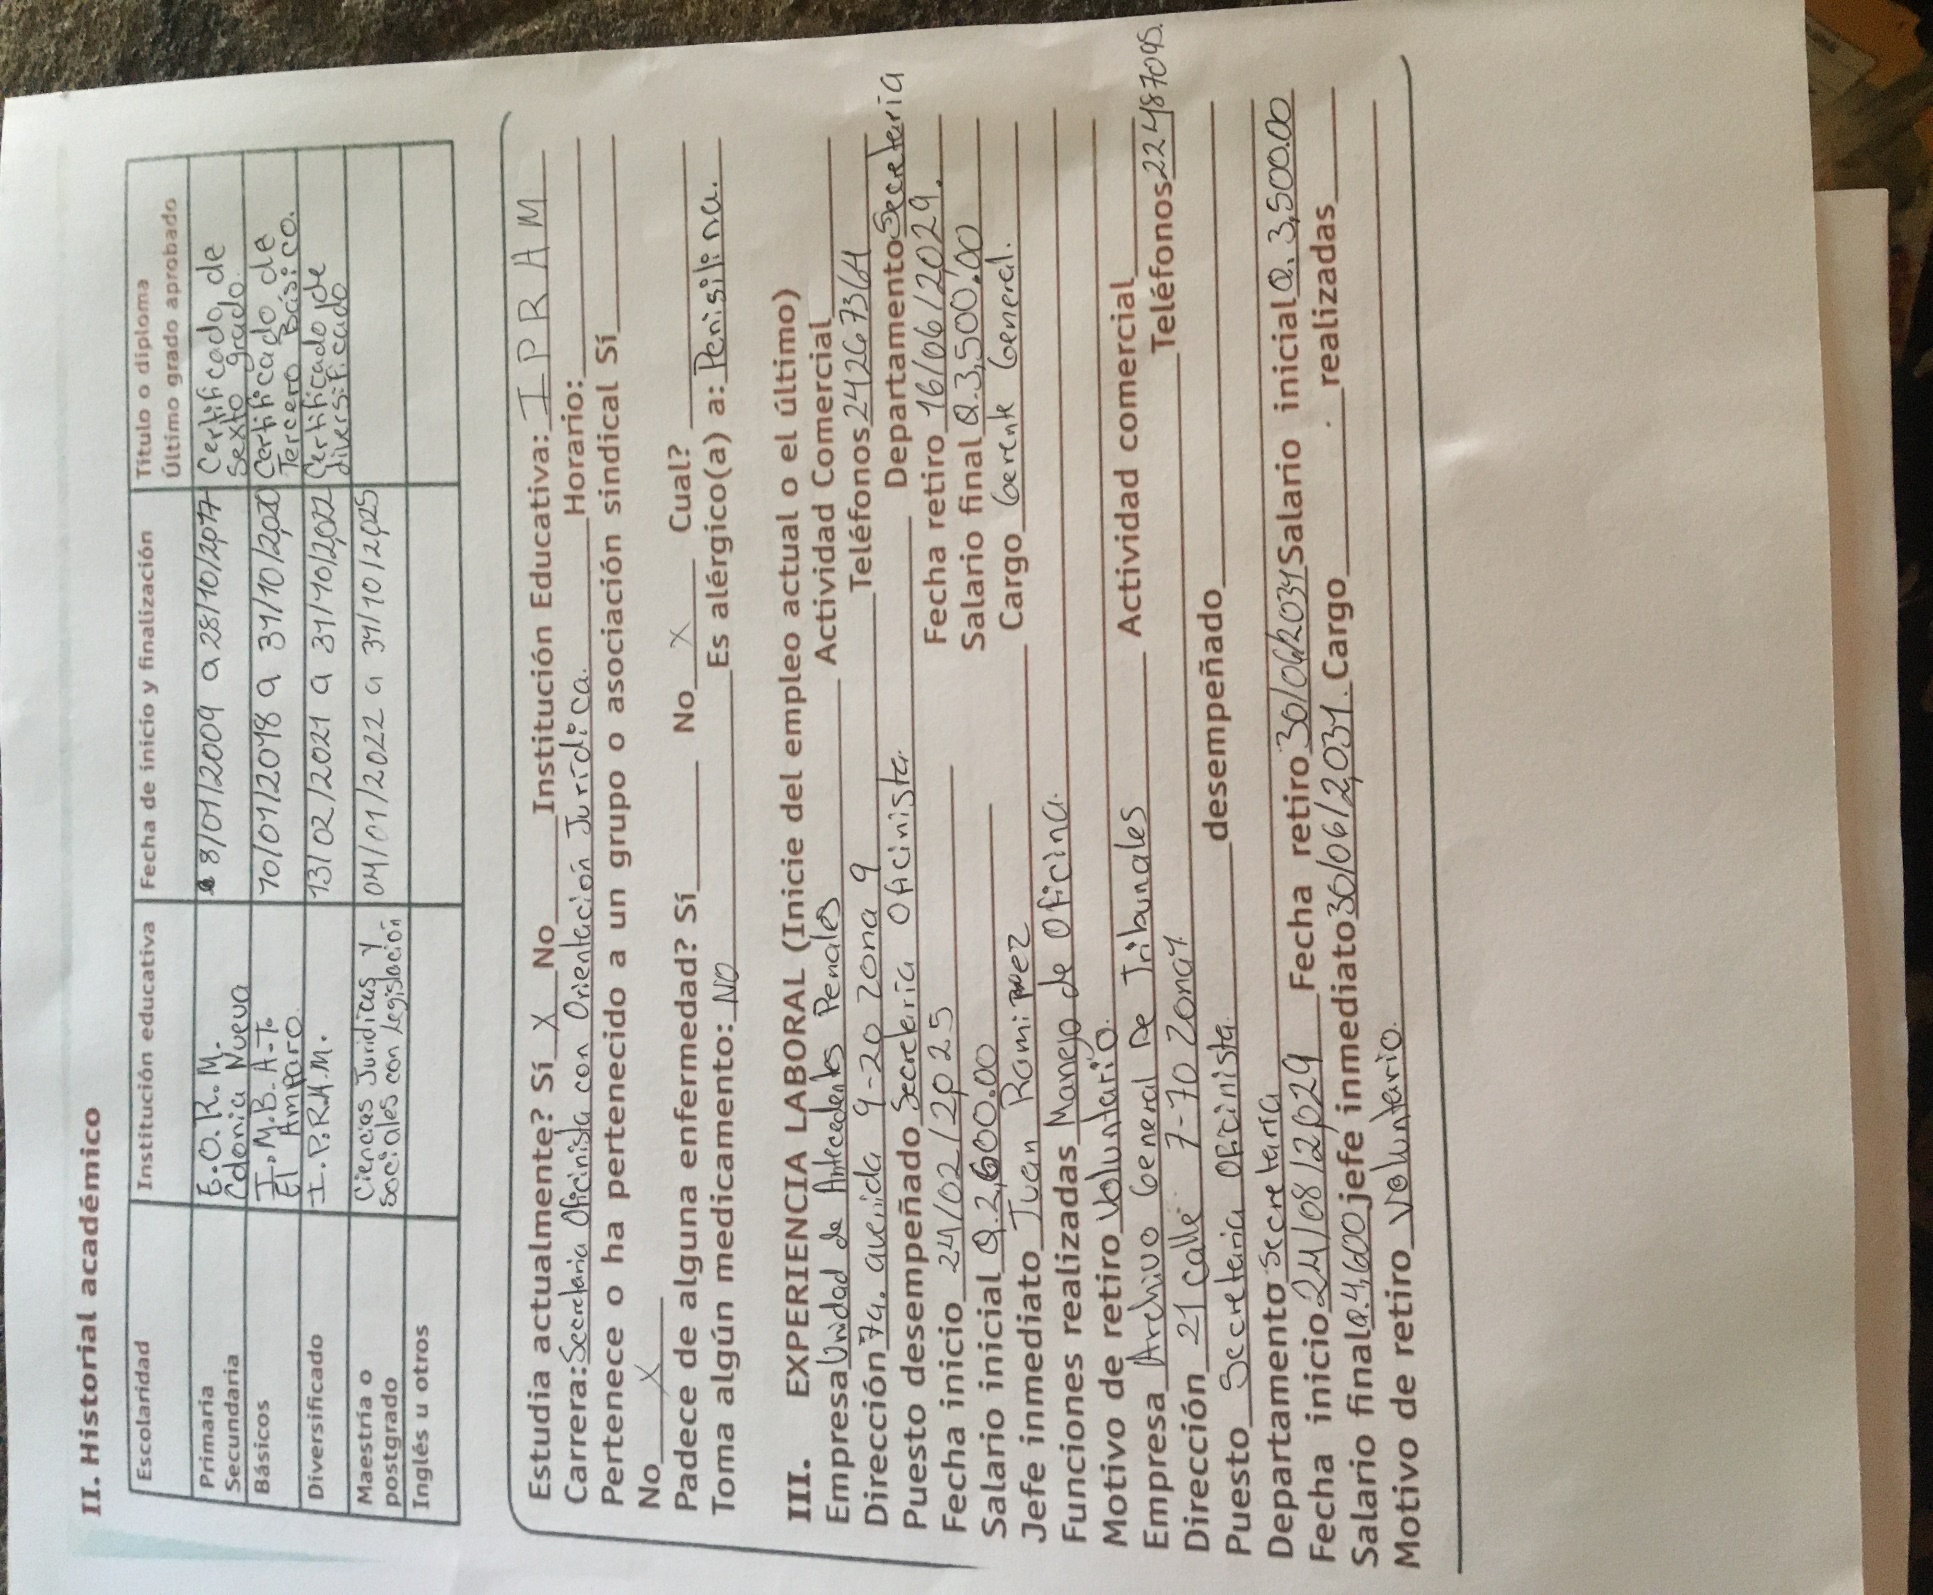 II. Historial académico
Escolaridad Institución educativa Fecha de inicio y finalización Título o diploma
Último grado aprobado
Primaria E.O.R.M. 8/01/2009 a 28/10/2017 Certificado de
Secundaria Colonia Nueva sexto grado
Básicos I.M.B.A.T. 10/01/2018 a 31/10/2020 Certificado de
El Amparo. Tercero Básico.
Diversificado I.P.R.A.M. 13/02/2021 a 31/10/2022 Certificado de
diversificado
Maestría o Ciencias Juridicas y 04/01/2022 a 31/10/2025
postgrado Sociales con legislación
Inglés u otros
Estudia actualmente? Sí X No Institución Educativa: IPRAM
Carrera: Secretaria Oficinista con Orientación Jurídica. Horario:
Pertenece o ha pertenecido a un grupo o asociación sindical Sí
No X
Padece de alguna enfermedad? Sí No X Cual?
Toma algún medicamento: NO Es alérgico(a) a: Penisilina.
III. EXPERIENCIA LABORAL (Inicie del empleo actual o el último)
Empresa Unidad de Antecedentes Penales Actividad Comercial
Dirección 7a. avenida 9-20 Zona 9 Teléfonos 24267364
Puesto desempeñado Secretaria Oficinista. Departamento Secretaria
Fecha inicio 24/02/2025 Fecha retiro 16/06/2029.
Salario inicial Q.2,600.00 Salario final Q.3,500.00
Jefe inmediato Juan Ramirez Cargo Gerente General.
Funciones realizadas Manejo de Oficina.
Motivo de retiro Voluntario.
Empresa Archivo General De Tribunales Actividad comercial
Dirección 21 calle 7-70 Zona 1. Teléfonos 22487095.
Puesto Secretaria Oficinista. desempeñado
Departamento Secretaria
Fecha inicio 24/08/2029 Fecha retiro 30/06/2031 Salario inicial Q. 3,500.00
Salario final Q.4,600 jefe inmediato 30/06/2031. Cargo realizadas
Motivo de retiro Voluntario.